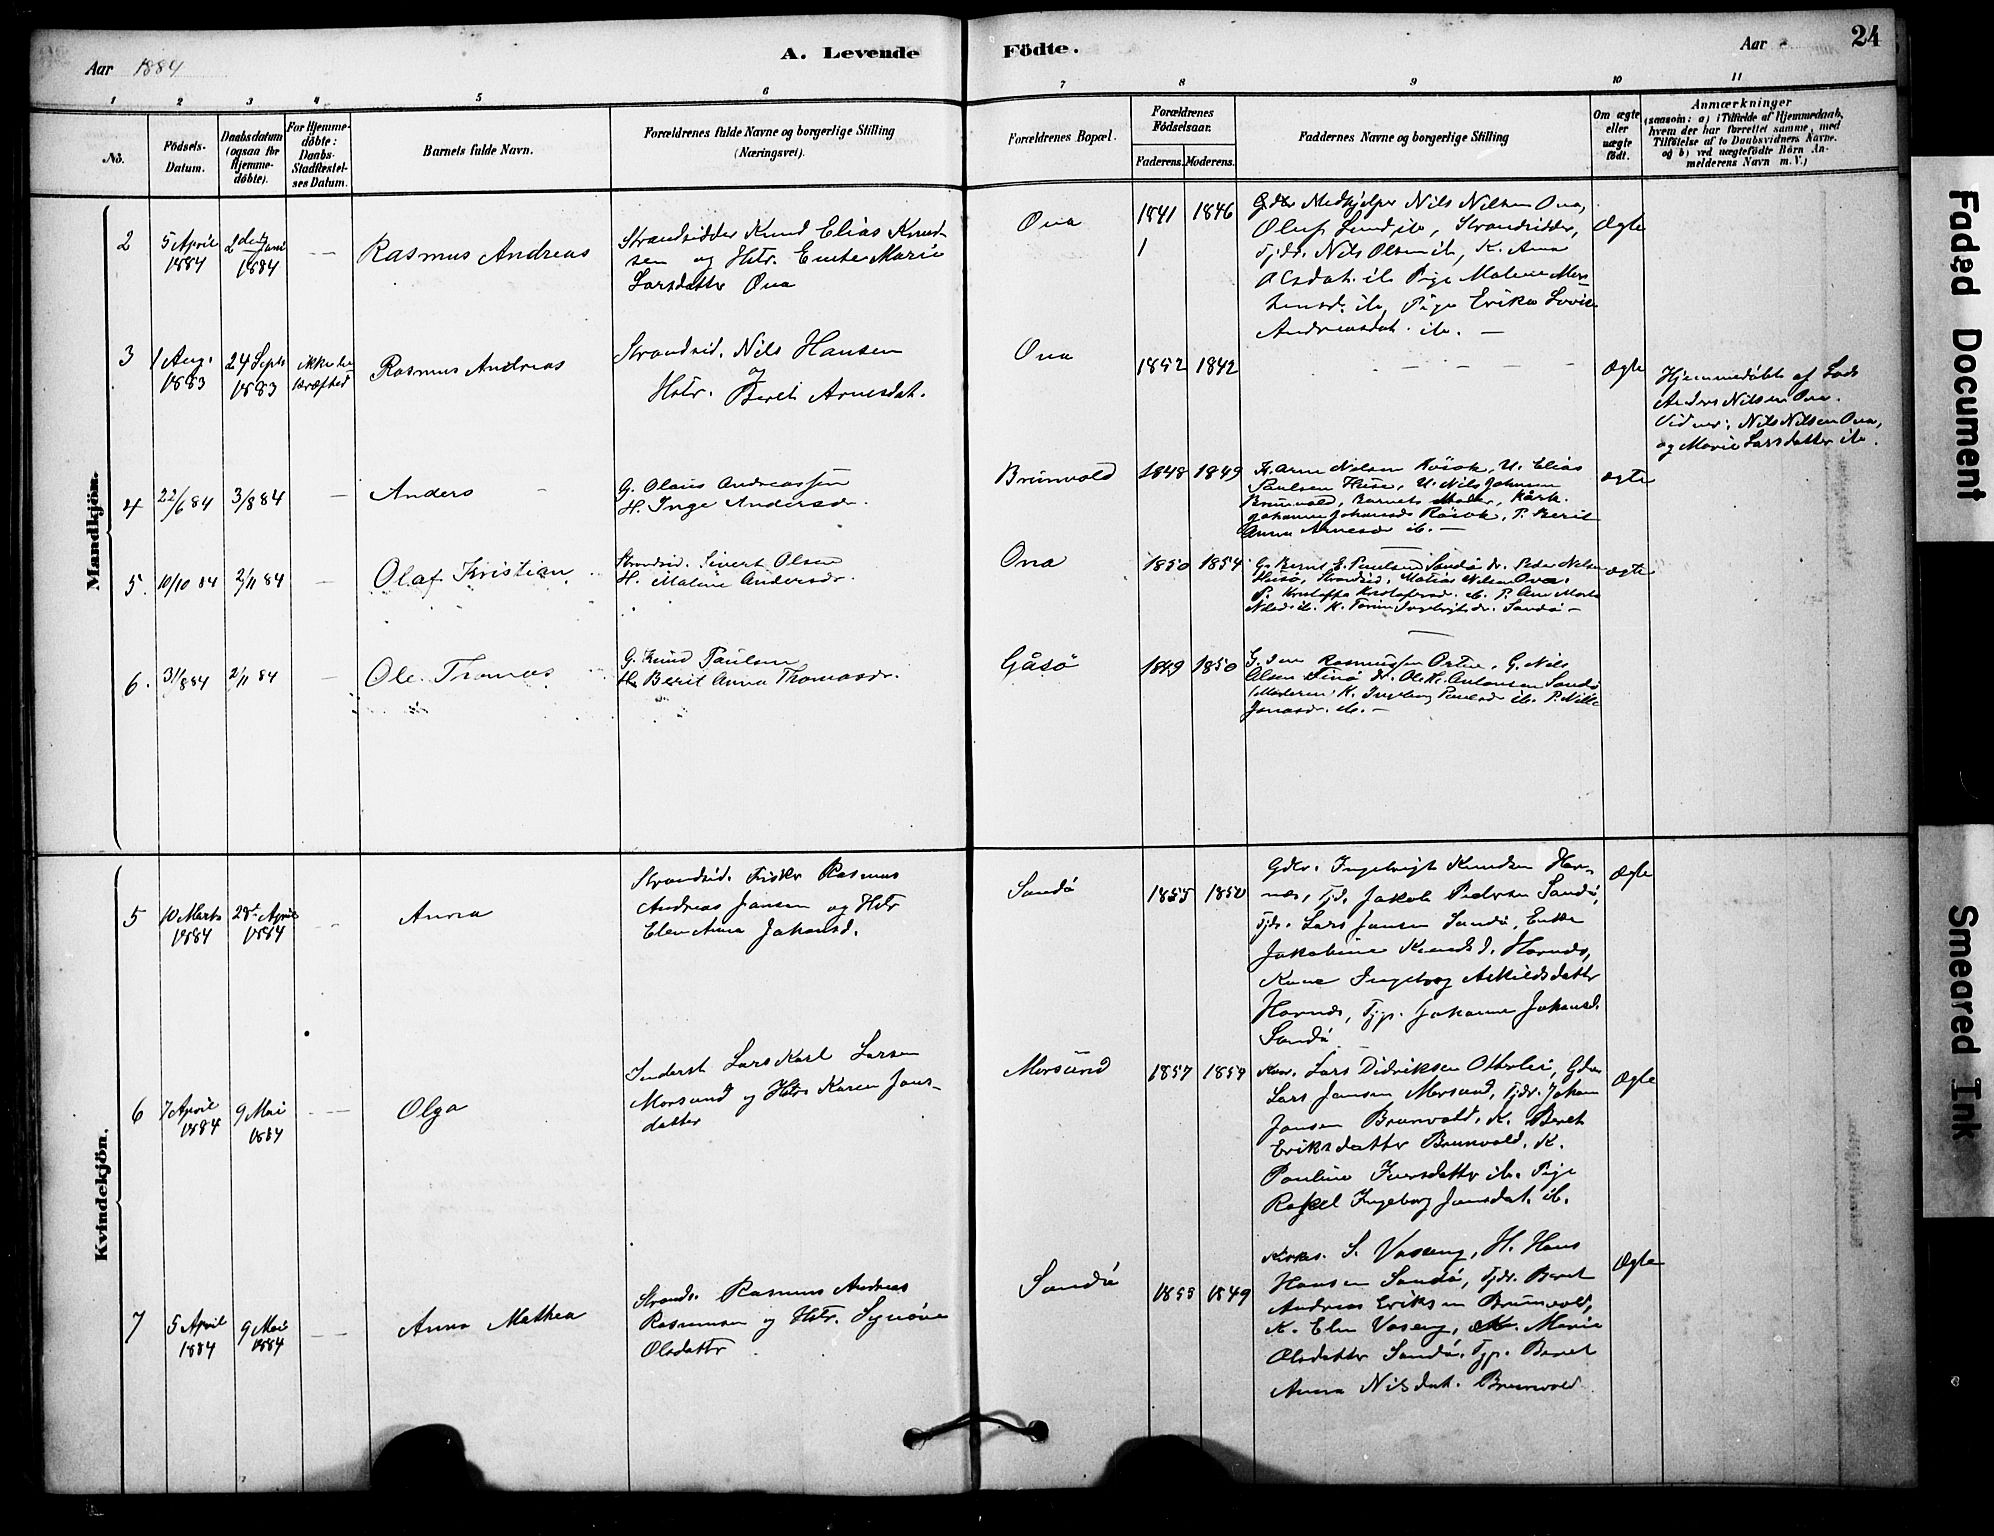 Aar 1884
A. Levende
Födte.
Aar
24
1
2
3
4
5
6
7
8
9
10
11
No.
Födsels-
Datum.
Daabsdatum
(ogsaa for
Hjemme-
døbte).
For Hjemme-
døbte:
Daabs-
Stadfæstel-
ses Datum.
Barnets fulde Navn.
Forældrenes fulde Navne og borgerlige Stilling
(Næringsvei).
Forældrenes Bopæl.
Forældrenes
Fødselsaar.
Faderens. Moderens.
Faddernes Navne og borgerlige Stilling
Om ægte
eller
uægte
født.
Anmærkninger
(saasom: a) i Tilfælde af Hjemmedaab,
hvem der har forrettet samme, med
Tilføielse af to Daabsvidners Navne.
og b) ved uægtefödte Börn An-
melderens Navn m. V.)
Mandkjön.
2
5 April
1884
2den Juni
1884
Rasmus Andreas
Strandsidder Knud Elias Knud-
sen og Hstr. Marie
Larsdatter Ona
Ona
1841 1846
Medhjelper Nils Nilsen Ona,
Oluf ib, Strandsidder,
Tjdr. Nils Olsen ib, K. Ana
Olsdat. ib Pige Malene Mor-
tensd. ib, Pige Erika Lovise
Andreasdat. ib. –
Ægte
3
1 Aug.
1883
24 Septb
1883
ikke be-
kræfted
Rasmus Andreas
Strandsid. Nils Hansen
og
Hstr. Berit Arnesdat.
Ona
1852 1842
Ægte
Hjemmedøbt af Lods
Anders Nilsen Ona.
Vidner: Nils Nilsen Ona,
og Marie Larsdatter ib.
4
22/6 84
3/8 84
Anders
G. Olaus Andreassen
H. Inge Andersdr.
Brunvold
1848 1849
K. Arne Nilsen Røsok, U. Elias
Paulsen Huse, U. Nils Johnsen
Brunvold, Barnets Moder, Kårk.
Johanne Johansd Røsok, P. Berit
Anna Arnesdr ib. –
ægte
5.
10/10 84
2/11 84
Olaf Kristian
Strandsid. Sivert Olsen
H. Maline Andersdr.
Ona
1850 1854
G. Bernt E. Paulsen Sandø Peder Nilsen
Husø, Strandsid. Matias Nilsen Ona.
P. Kristofersd. ib. P. Ane Marta
Nilsd ib. K. Ingebrigtsdr. Sandø –
ægte
6.
31/8 84
2/11 84
Ole Thomas
G. Knud Paulsen
H. Berit Anna Thomasdr.
Gåsø
1849 1850
G. Iver Rasmussen G. Nils
Olsen Ole K. Antonsen Sandø
(Moderen) K. Ingeborg Paulsdr ib. P. Nille
Jonasdr. ib. –
Kvindekjön.
5
10 Marts
1884
28d. April
1884
Anna
Strandsid. Fisker Rasmus
Andreas Jansen og Hstr
Elen Anna Johansd.
Sandø
1855 1850
Gdbr. Ingebrigt Knudsen Har-
næs, Tjd. Jakob Pedersen Sandø,
Tjdr. Lars Jansen Sandø, Enke
Jakobine Knudsd. Harnæs,
Kone Ingeborg Askildsdatter
Harnæs, Tjp. Johanne Johansd.
Sandø
Ægte
6
7 April
1884
9 Mai
1884
Olga
Inderst Lars Karl Larsen
Morsund og Hstr Karen Jans-
datter
Morsund
1857 1859
Lars Didriksen Otterlei,
Lars Jansen Morsund, Tjdr. Johan
Jansen Brunvold, K. Beret
Eriksdatter Brunvold, K.
Pauline Iversdatter ib. Pige
Rakel Ingeborg Jansdat. ib.
Ægte
7
5 April
1884
9 Mai
1884
Anna Mathea
Strands. Rasmus Andreas
Rasmussen og Hstr. Synøve
Olsdatter
Sandø
1853 1849
Kirkes. S. Vaseng, H. Hans
Hansen Sandø, Tjdr. Beret
Andreas Eriksen Brunvold,
K. Elen Vaseng, K. Marie
Olsdatter Sandø. Tjp. Beret
Anna Nilsdat. Brunvold
Ægte
Faded Document
Smeared Ink